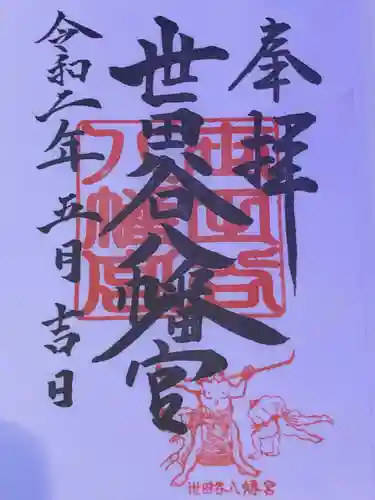 奉拝
世田谷八幡宮
令和二年五月吉日
世田谷八幡宮
世田谷八幡宮